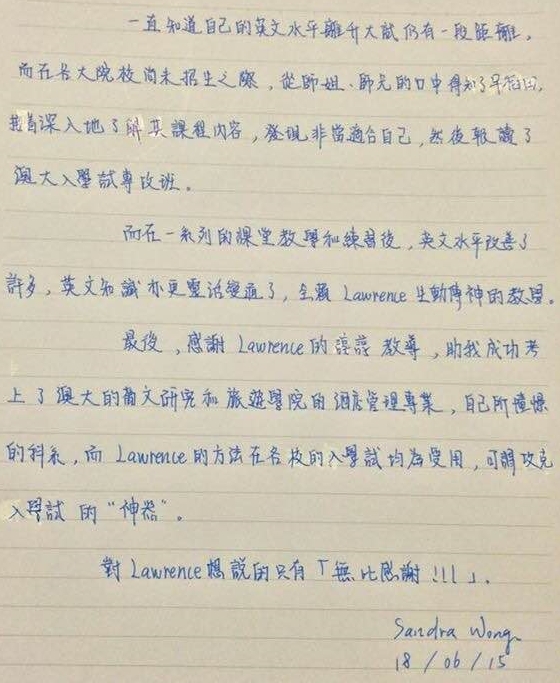 一直知道自己的英文水平離升大試仍有一段距離,
而在各大院校尚未招生之際，從師姐、師兄的口中得知了早稻田,
且深入地了解其課程內容，發現非常適合自己，然後報讀了
澳大入學試專攻班。
而在一系列的課堂教學和練習後，英文水平改善了
許多，英文知識亦更靈活變通了，全賴 Lawrence 生動傳神的教學。
最後，感謝 Lawrence 的諄諄教導，助我成功考
上了澳大的葡文研究和旅遊學院的酒店管理專業，自己所憧憬
的科系，而 Lawrence 的方法在各校的入學試均為受用，可謂攻克
入學試的“神器”。
對 Lawrence 想說的只有「無比感謝!!!」.
Sandra Wong
18/06/15